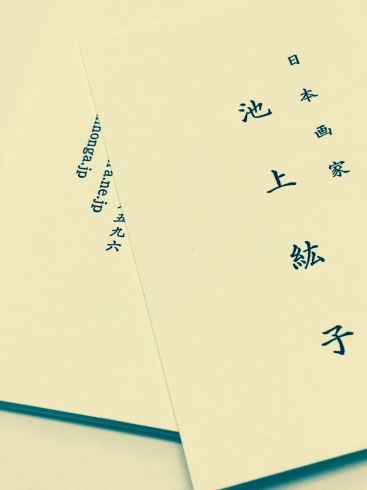 日本画家
池上紘子
nonga.jp
a.ne.jp
五九六